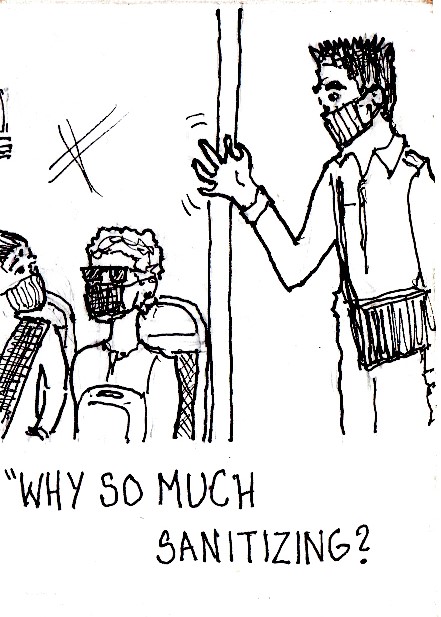 "WHY SO MUCH
SANITIZING?